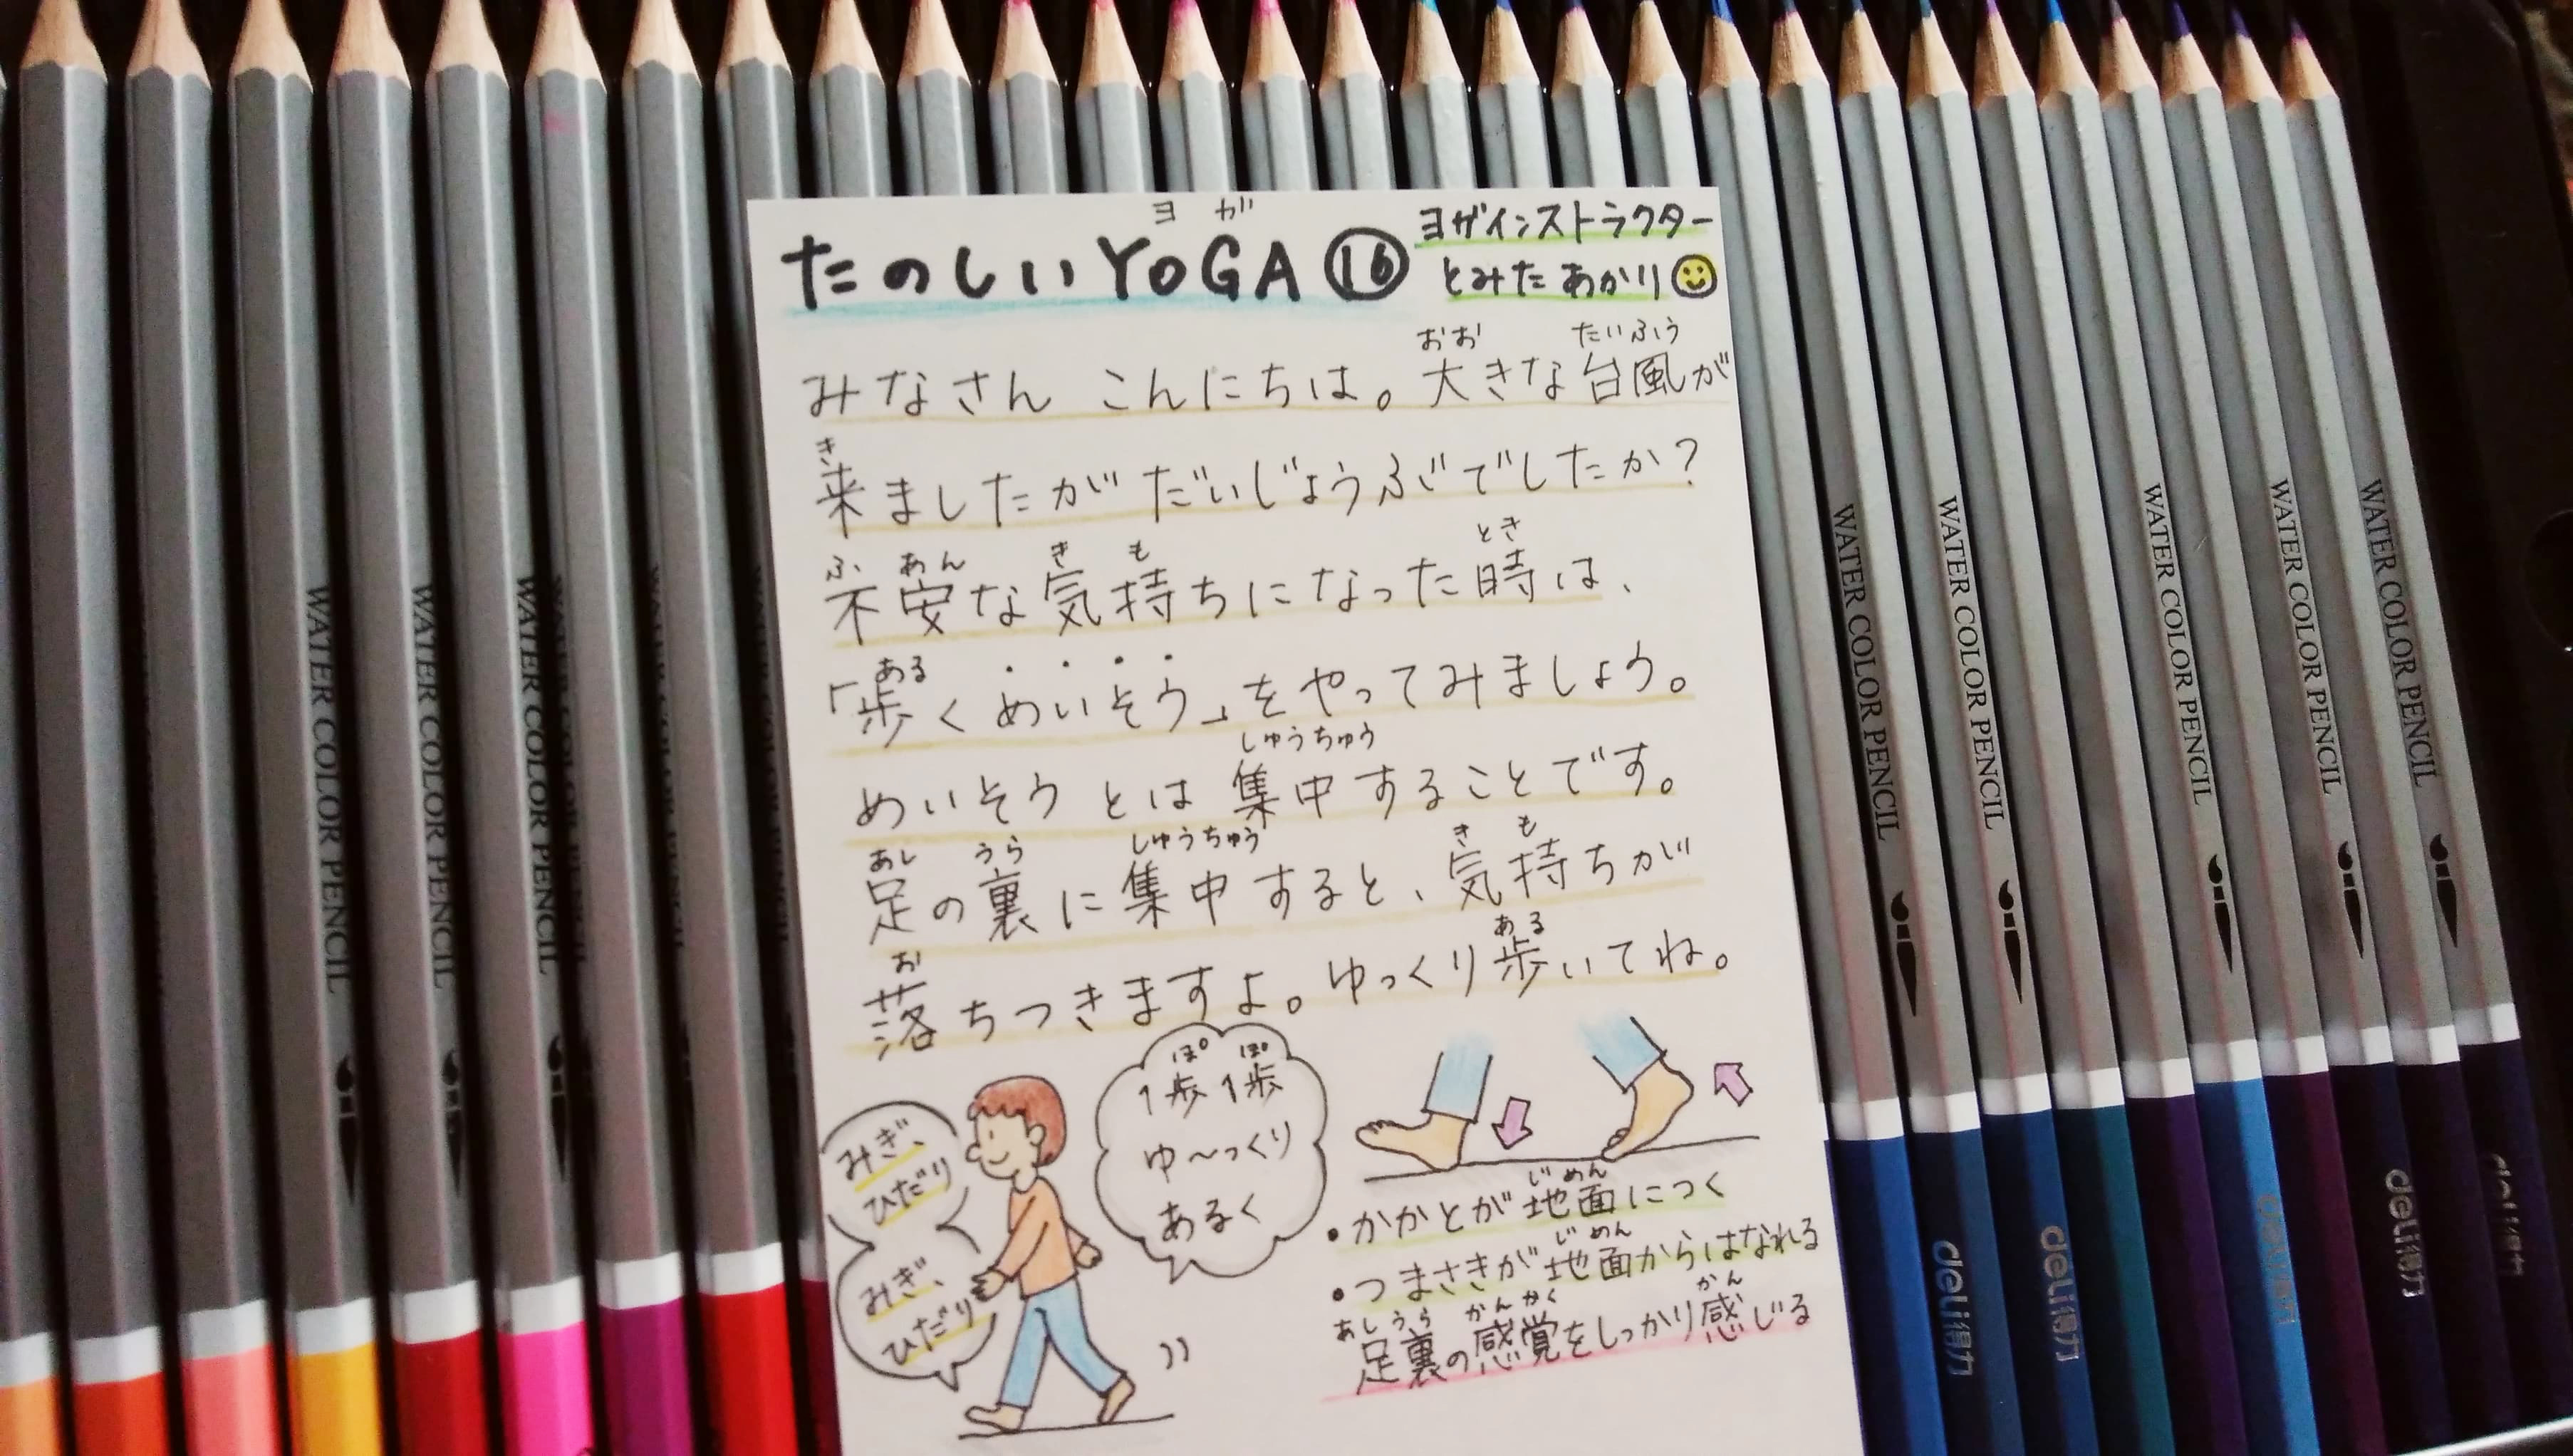 ヨガ
たのしいYOGA⑯
ヨガインストラクター
とみた あかり
おお たいふう
みなさん こんにちは。大きな台風が
き
来ましたが だいじょうぶでしたか?
ふ あん き も とき
不安な気持ちになった時は、
ある
「歩くめいそう」をやってみましょう。
しゅうちゅう
めいそう とは 集中することです。
あし うら しゅうちゅう き も
足の裏に集中すると、気持ちが
お ある
落ちつきますよ。ゆっくり歩いてね。
みぎ、
ひだり
みぎ、
ひだり
ぽ ぽ
1歩1歩
ゆ〜っくり
あるく
じめん
・かかとが地面につく
じめん
・つまさきが地面からはなれる
あしうら かんかく かん
足裏の感覚をしっかり感じる
WATER COLOR PENCIL
WATER COLOR PENCIL
WATER COLOR PENCIL
WATER COLOR PENCIL
WATER COLOR PENCIL
WATER COLOR PENCIL
WATER COLOR PENCIL
WATER COLOR PENCIL
deli得力
deli得力
deli得力
deli得力
deli得力